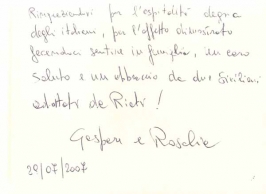 Ringraziandovi per l'ospitalità degna
degli italiani, per l'affetto dimostrato
facendoci sentire in famiglia, un caro
saluto e un abbraccio da due Siciliani
adottati da Rieti!
Gaspare e Rosalia
20/07/2007